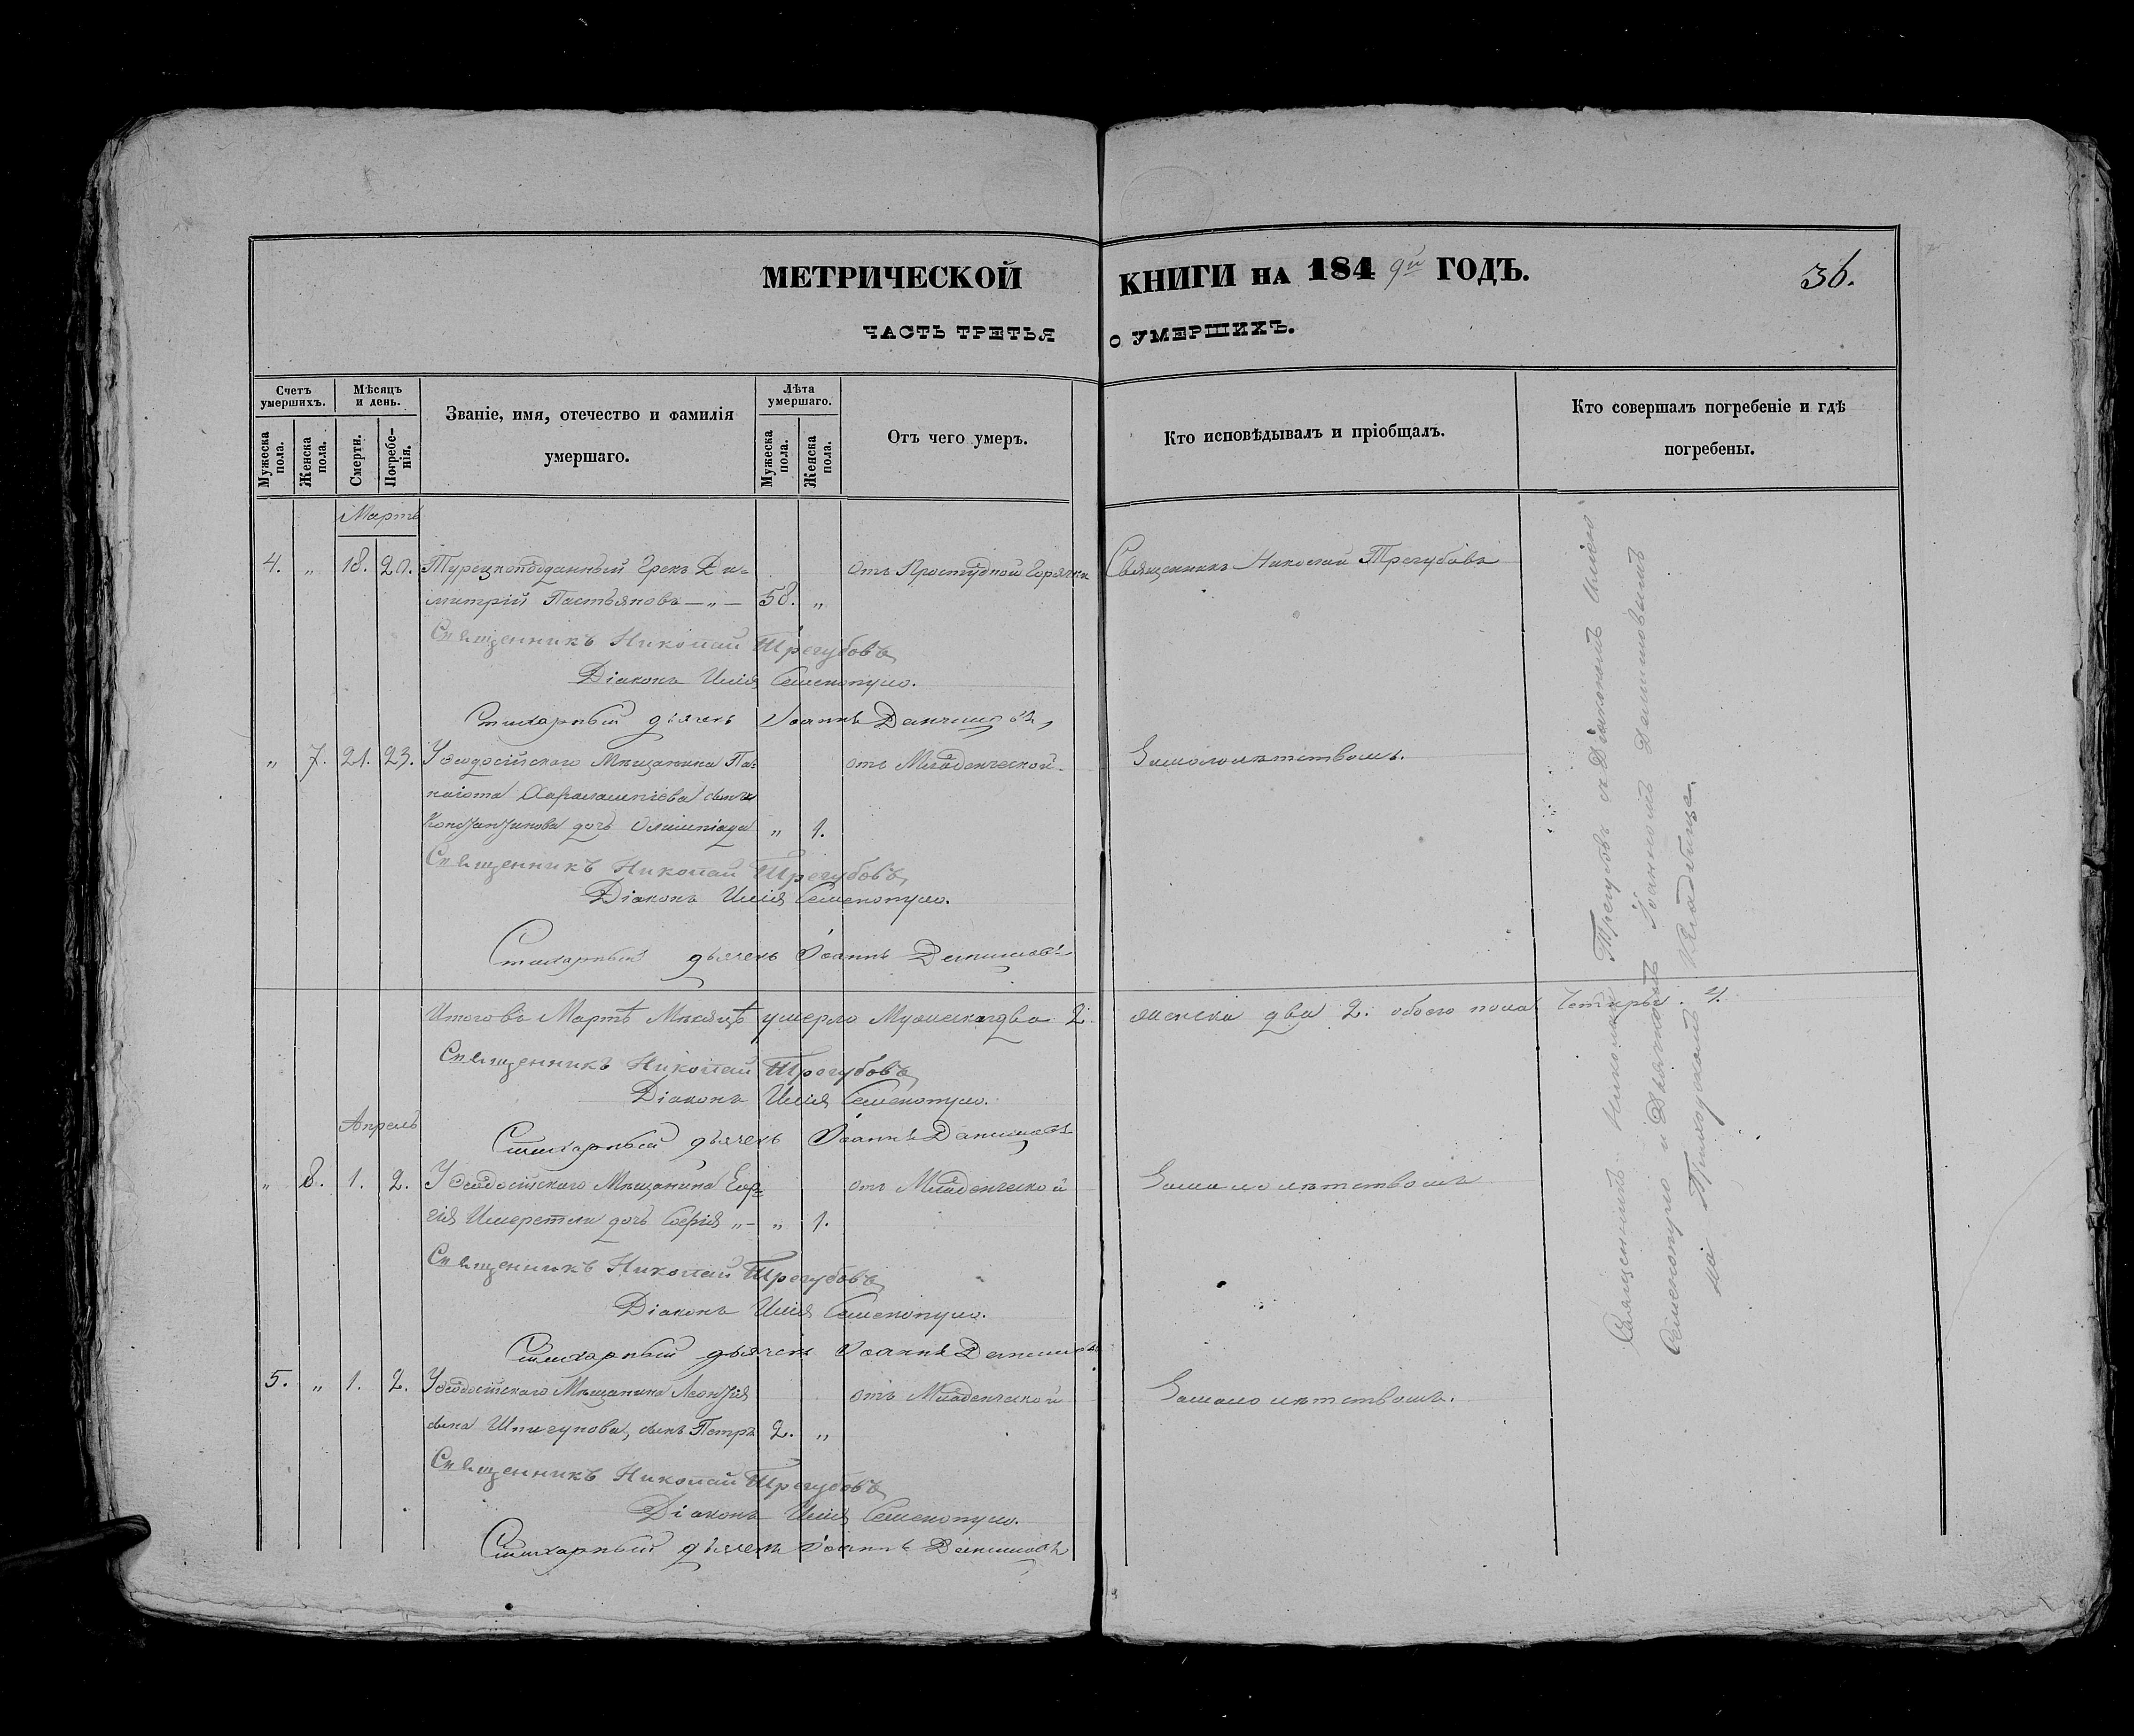 МЕТРИЧЕСКОЙ КНИГИ НА 1849й ГОДЪ.
36.
ЧАСТЬ ТРЕТЬЯ О УМЕРШИХЪ.
Счетъ умершихъ.
Мѣсяцъ и день.
Званіе, имя, отечество и фамилія умершаго.
Лѣта умершаго.
Отъ чего умеръ.
Кто исповѣдывалъ и пріобщалъ.
Кто совершалъ погребеніе и гдѣ погребены.
Мужеска пола.
Женска пола.
Смерти.
Погребенія.
Мужеска пола.
Женска пола.
Мартъ
4. „ 18. 20. Турецкоподданный Грекъ Ди- отъ Простудной Горячки Священникъ Николай Трегубовъ
митрій Пастьяновъ — „ — 58. „
Священникъ Николай Трегубовъ
Діаконъ Илія Семенопуло.
Стихарный дьячекъ Іоаннъ Данилов
„ 7. 21. 23. Ѳеодосійского Мѣщанина Па- отъ Младенческой Замалолѣтствомъ.
наіота Харалампіева сына
Константинова дочь Олимпіада „ 1.
Священникъ Николай Трегубовъ
Діаконъ Илія Семенопуло.
Стихарный дьячекъ Іоаннъ Данилов
Итого въ Мартѣ Мѣсяцѣ умерло Мужеска два 2. женска два 2. обоего пола Четыры. 4.
Священникъ Николай Трегубовъ
Діаконъ Илія Семенопуло.
Апрель
Стихарный дьячекъ Іоаннъ Данилов
„ 8. 1. 2. Ѳеодосійского Мѣщанина Еор- отъ Младенческой Замалолѣтствомъ
гія Имеретли дочь Софія „ – „ 1.
Священникъ Николай Трегубовъ
Діаконъ Илія Семенопуло.
Стихарный дьячекъ Іоаннъ Данилов
5. „ 1. 2. Ѳеодосійского Мѣщанина Леонтія отъ Младенческой Замалолѣтствомъ.
сына Шпигунова, сынъ Петръ 2. „
Священникъ Николай Трегубовъ
Діаконъ Илія Семенопуло.
Стихарный дьячекъ Іоаннъ Данилов
Священникъ Николай Трегубовъ съ Діакономъ Иліею
Семенопуло и Дьячкомъ Іоанномъ Даниловымъ
на Приходскомъ Кладбище.